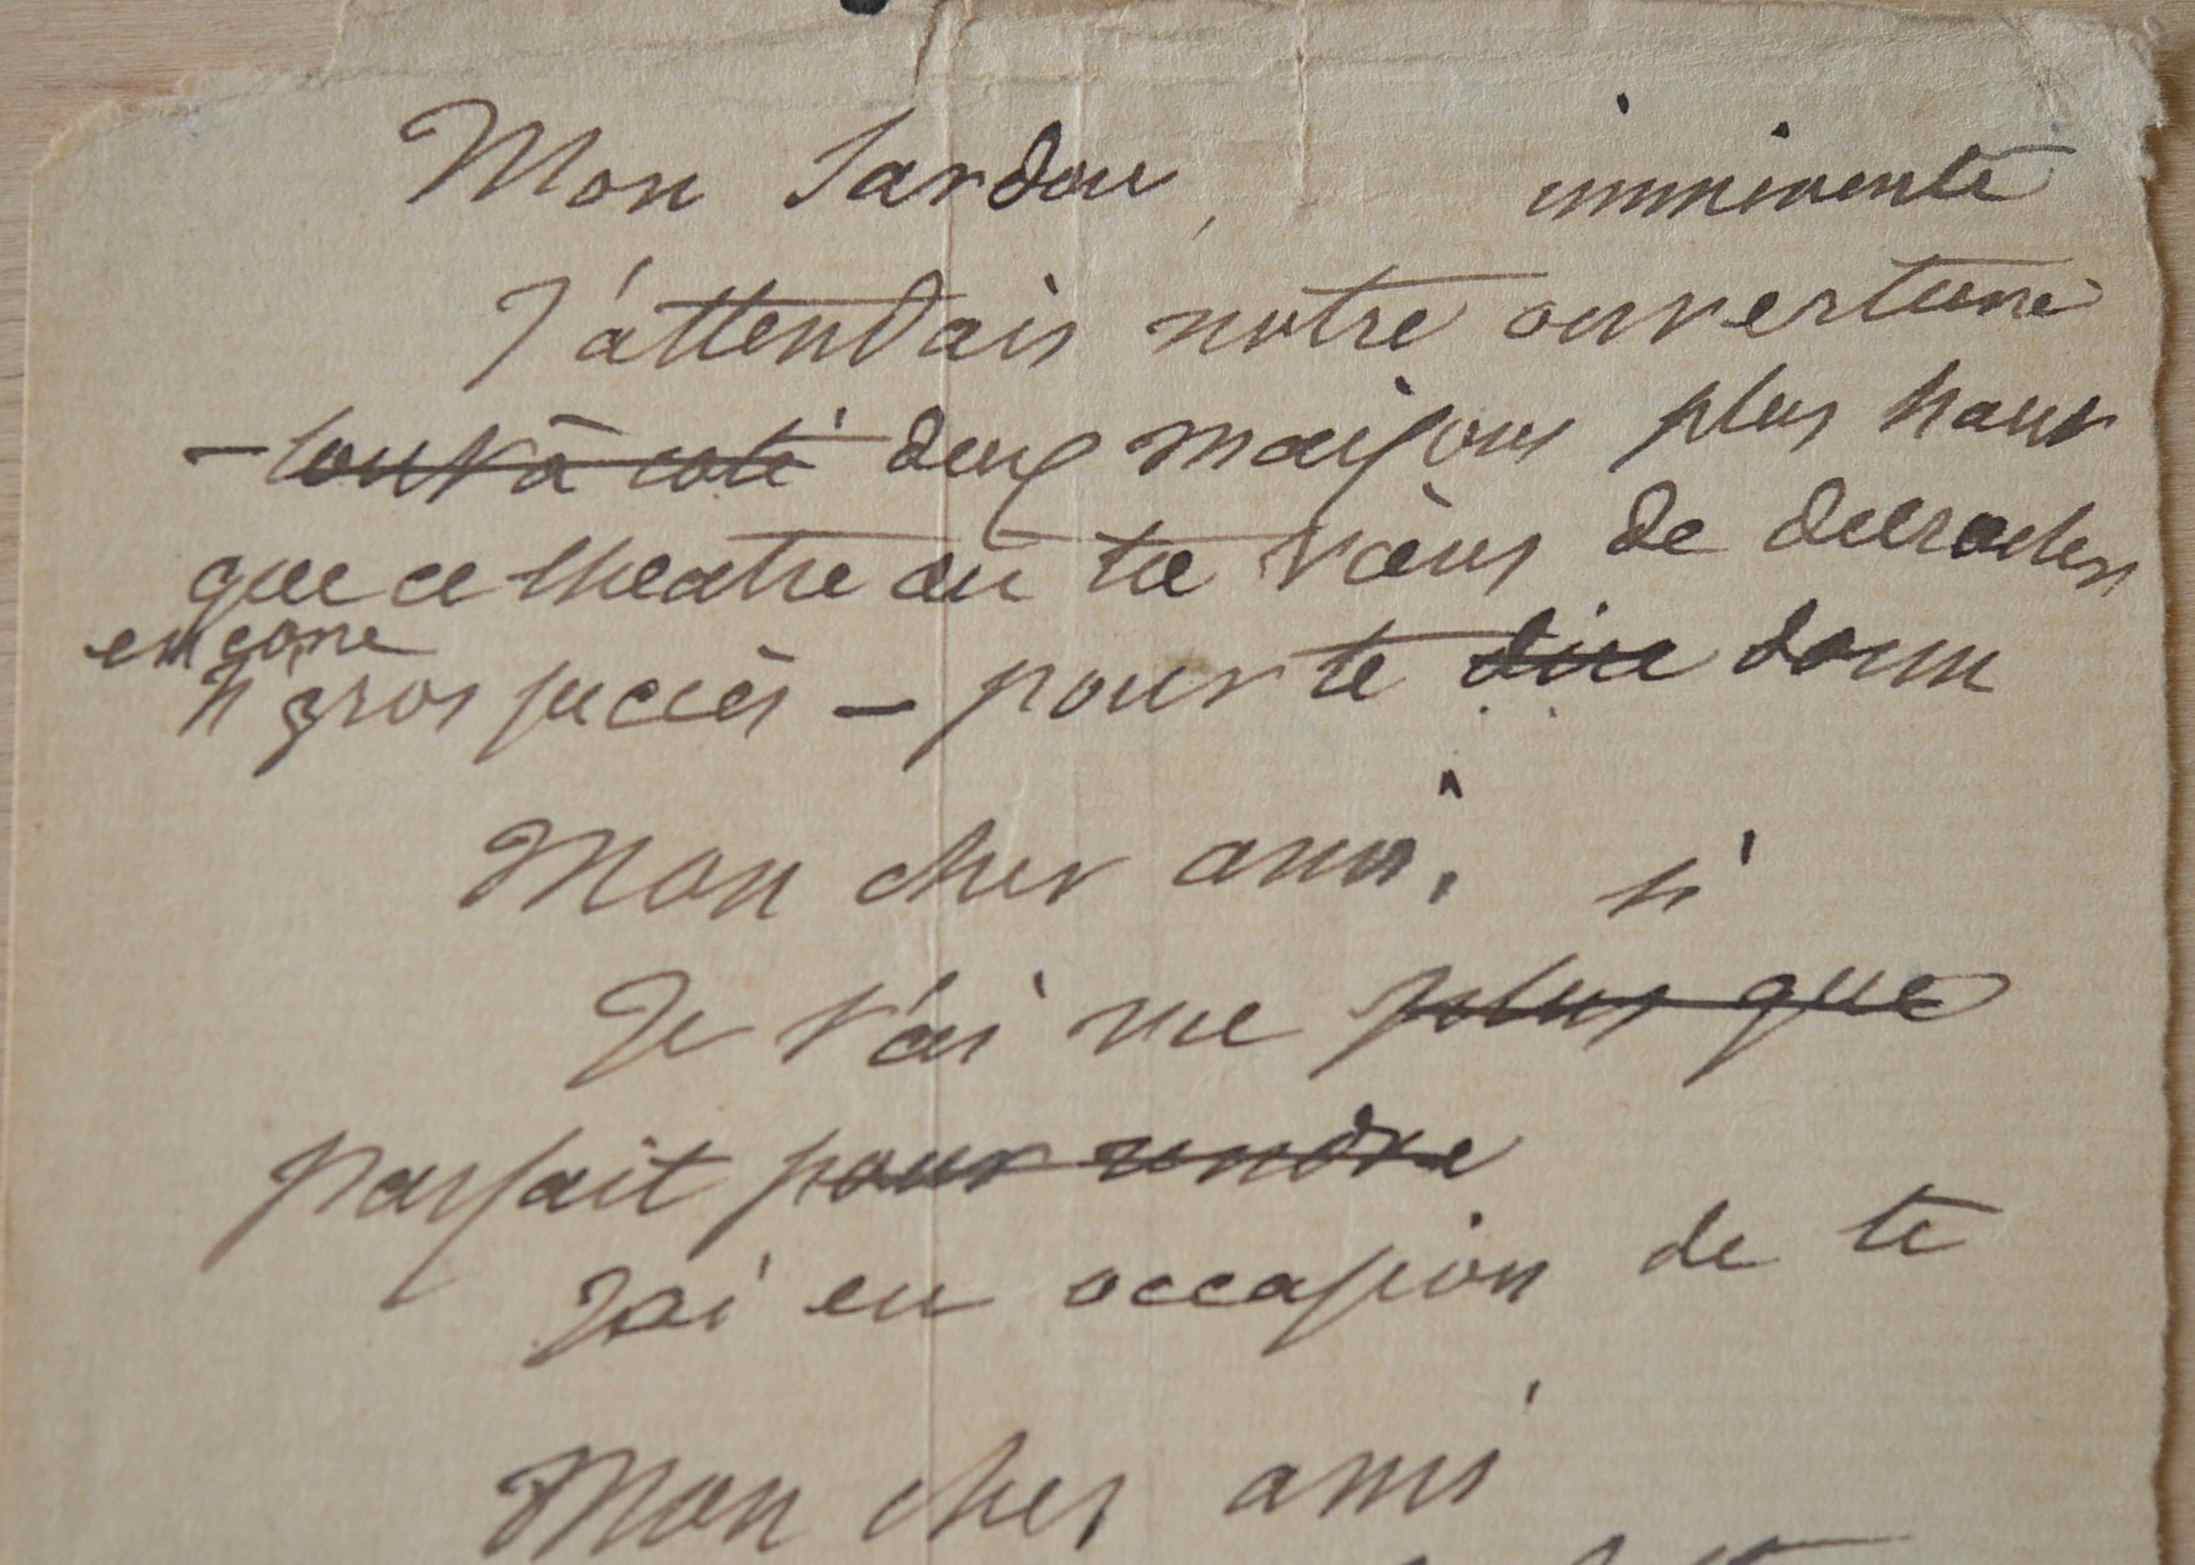 Mon Sardou,
imminente
J'attendais notre ouverture
– tout à coté deux maisons plus haut
que ce theatre où tu viens de decrocher
encore
si gros succès – pour te dire donn
Mon cher ami, si
Je t'ai vu plus que
parfait pour rendre
J'ai eu occasion de te
Mon cher ami